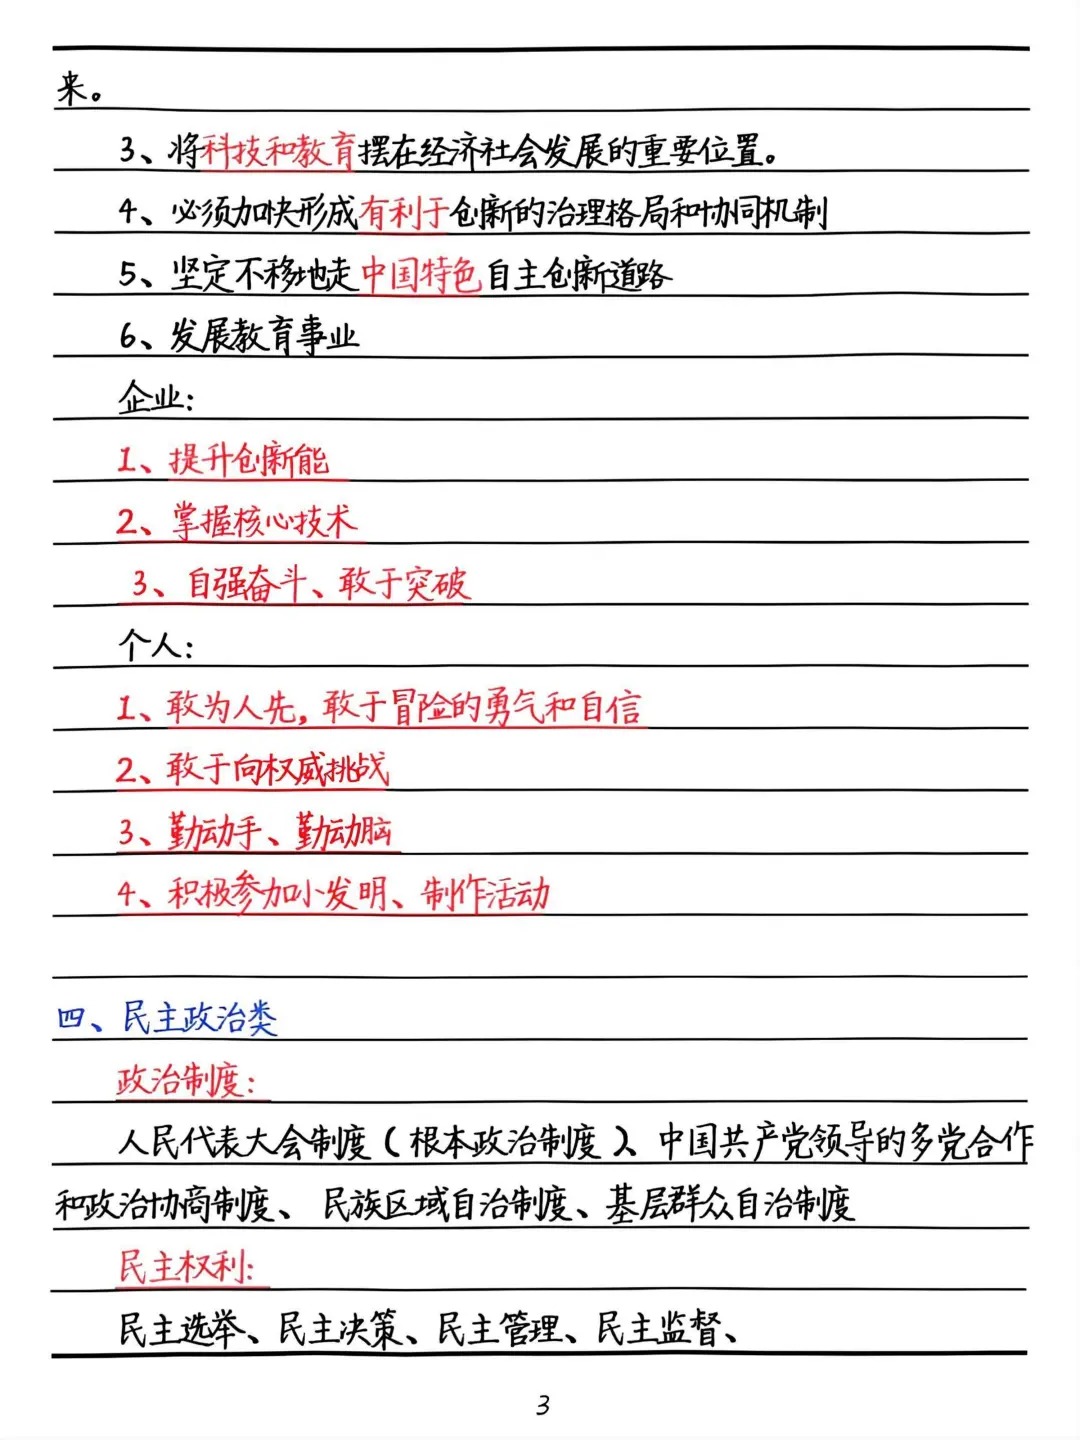 来。
3、将科技和教育摆在经济社会发展的重要位置。
4、必须加快形成有利于创新的治理格局和协同机制
5、坚定不移地走中国特色自主创新道路
6、发展教育事业
企业:
1、提升创新能
2、掌握核心技术
3、自强奋斗、敢于突破
个人:
1、敢为人先,敢于冒险的勇气和自信
2、敢于向权威挑战
3、勤动手、勤动脑
4、积极参加小发明、制作活动
四、民主政治类
政治制度:
人民代表大会制度(根本政治制度)、中国共产党领导的多党合作
和政治协商制度、 民族区域自治制度、基层群众自治制度
民主权利:
民主选举、民主决策、民主管理、民主监督、
3